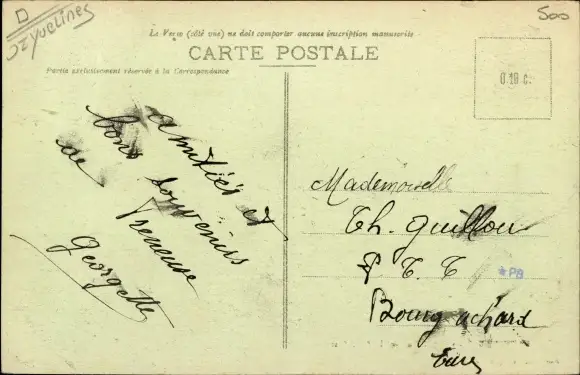 D
Yvelines
500
Le Verso (côté vue) ne doit comporter aucune inscription manuscrite
CARTE POSTALE
Partie exclusivement réservée à la Correspondance
0 10 c.
Amitiés et
bons souvenirs
de
Georgette
Mademoiselle
Th. Guillou
P T T
*PB
Bourg achard
Eure